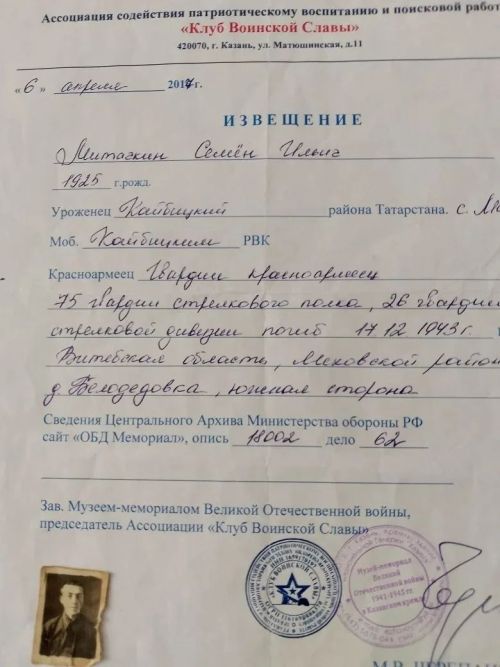 Ассоциация содействия патриотическому воспитанию и поисковой работ
«Клуб Воинской Славы»
420070, г. Казань, ул. Матюшинская, д.11
«6» апреля 2017г.
ИЗВЕЩЕНИЕ
Митяжкин Семён Ильич
1925 г.рожд.
Уроженец Кайбицкий района Татарстана. с.
Моб. Кайбицким РВК
Красноармеец Гвардии красноармеец
75 гвардии стрелкового полка, 26 гвардии
стрелковой дивизии погиб 17.12.1943г.
Витебская область, Меховской район
д. Белодедовка, южная сторона
Сведения Центрального Архива Министерства обороны РФ
сайт «ОБД Мемориал», опись 18002 дело 62
Зав. Музеем-мемориалом Великой Отечественной войны,
председатель Ассоциации «Клуб Воинской Славы»
«КЛУБ ВОИНСКОЙ СЛАВЫ»
Музей-мемориал
Великой
Отечественной войны
1941-1945 гг.
в Казанском кремле